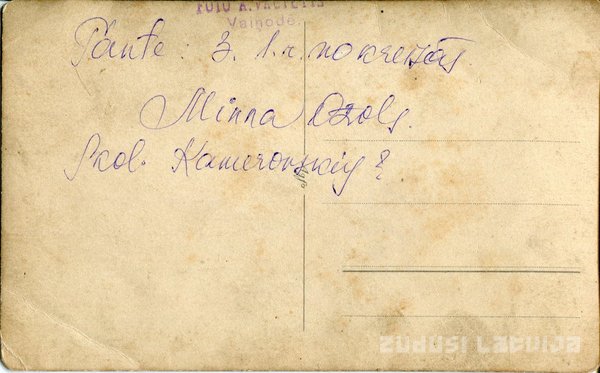 FOTO A.
Vaiņode.
Pante: 3. 1. r. no kreisās
Minna Ozols.
Skol. Kamerovskiy?
zudusi Latvija